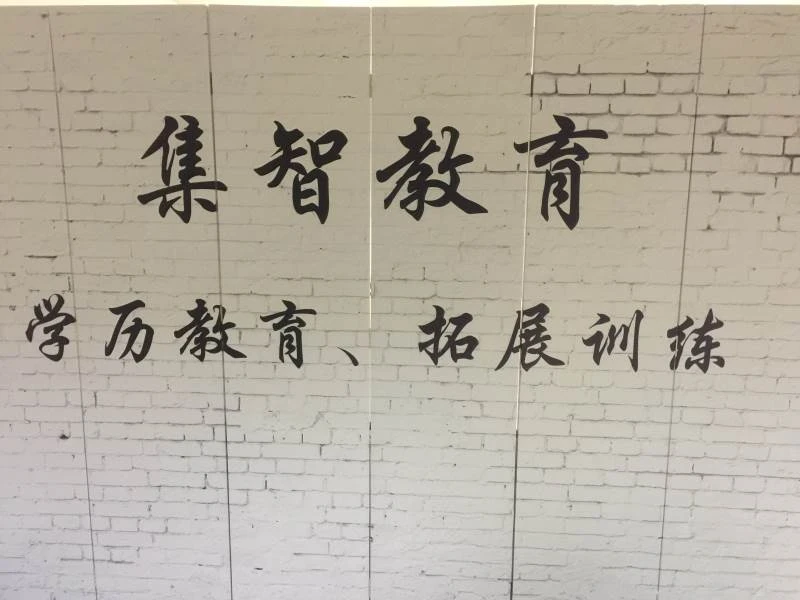 集智教育
学历教育、拓展训练